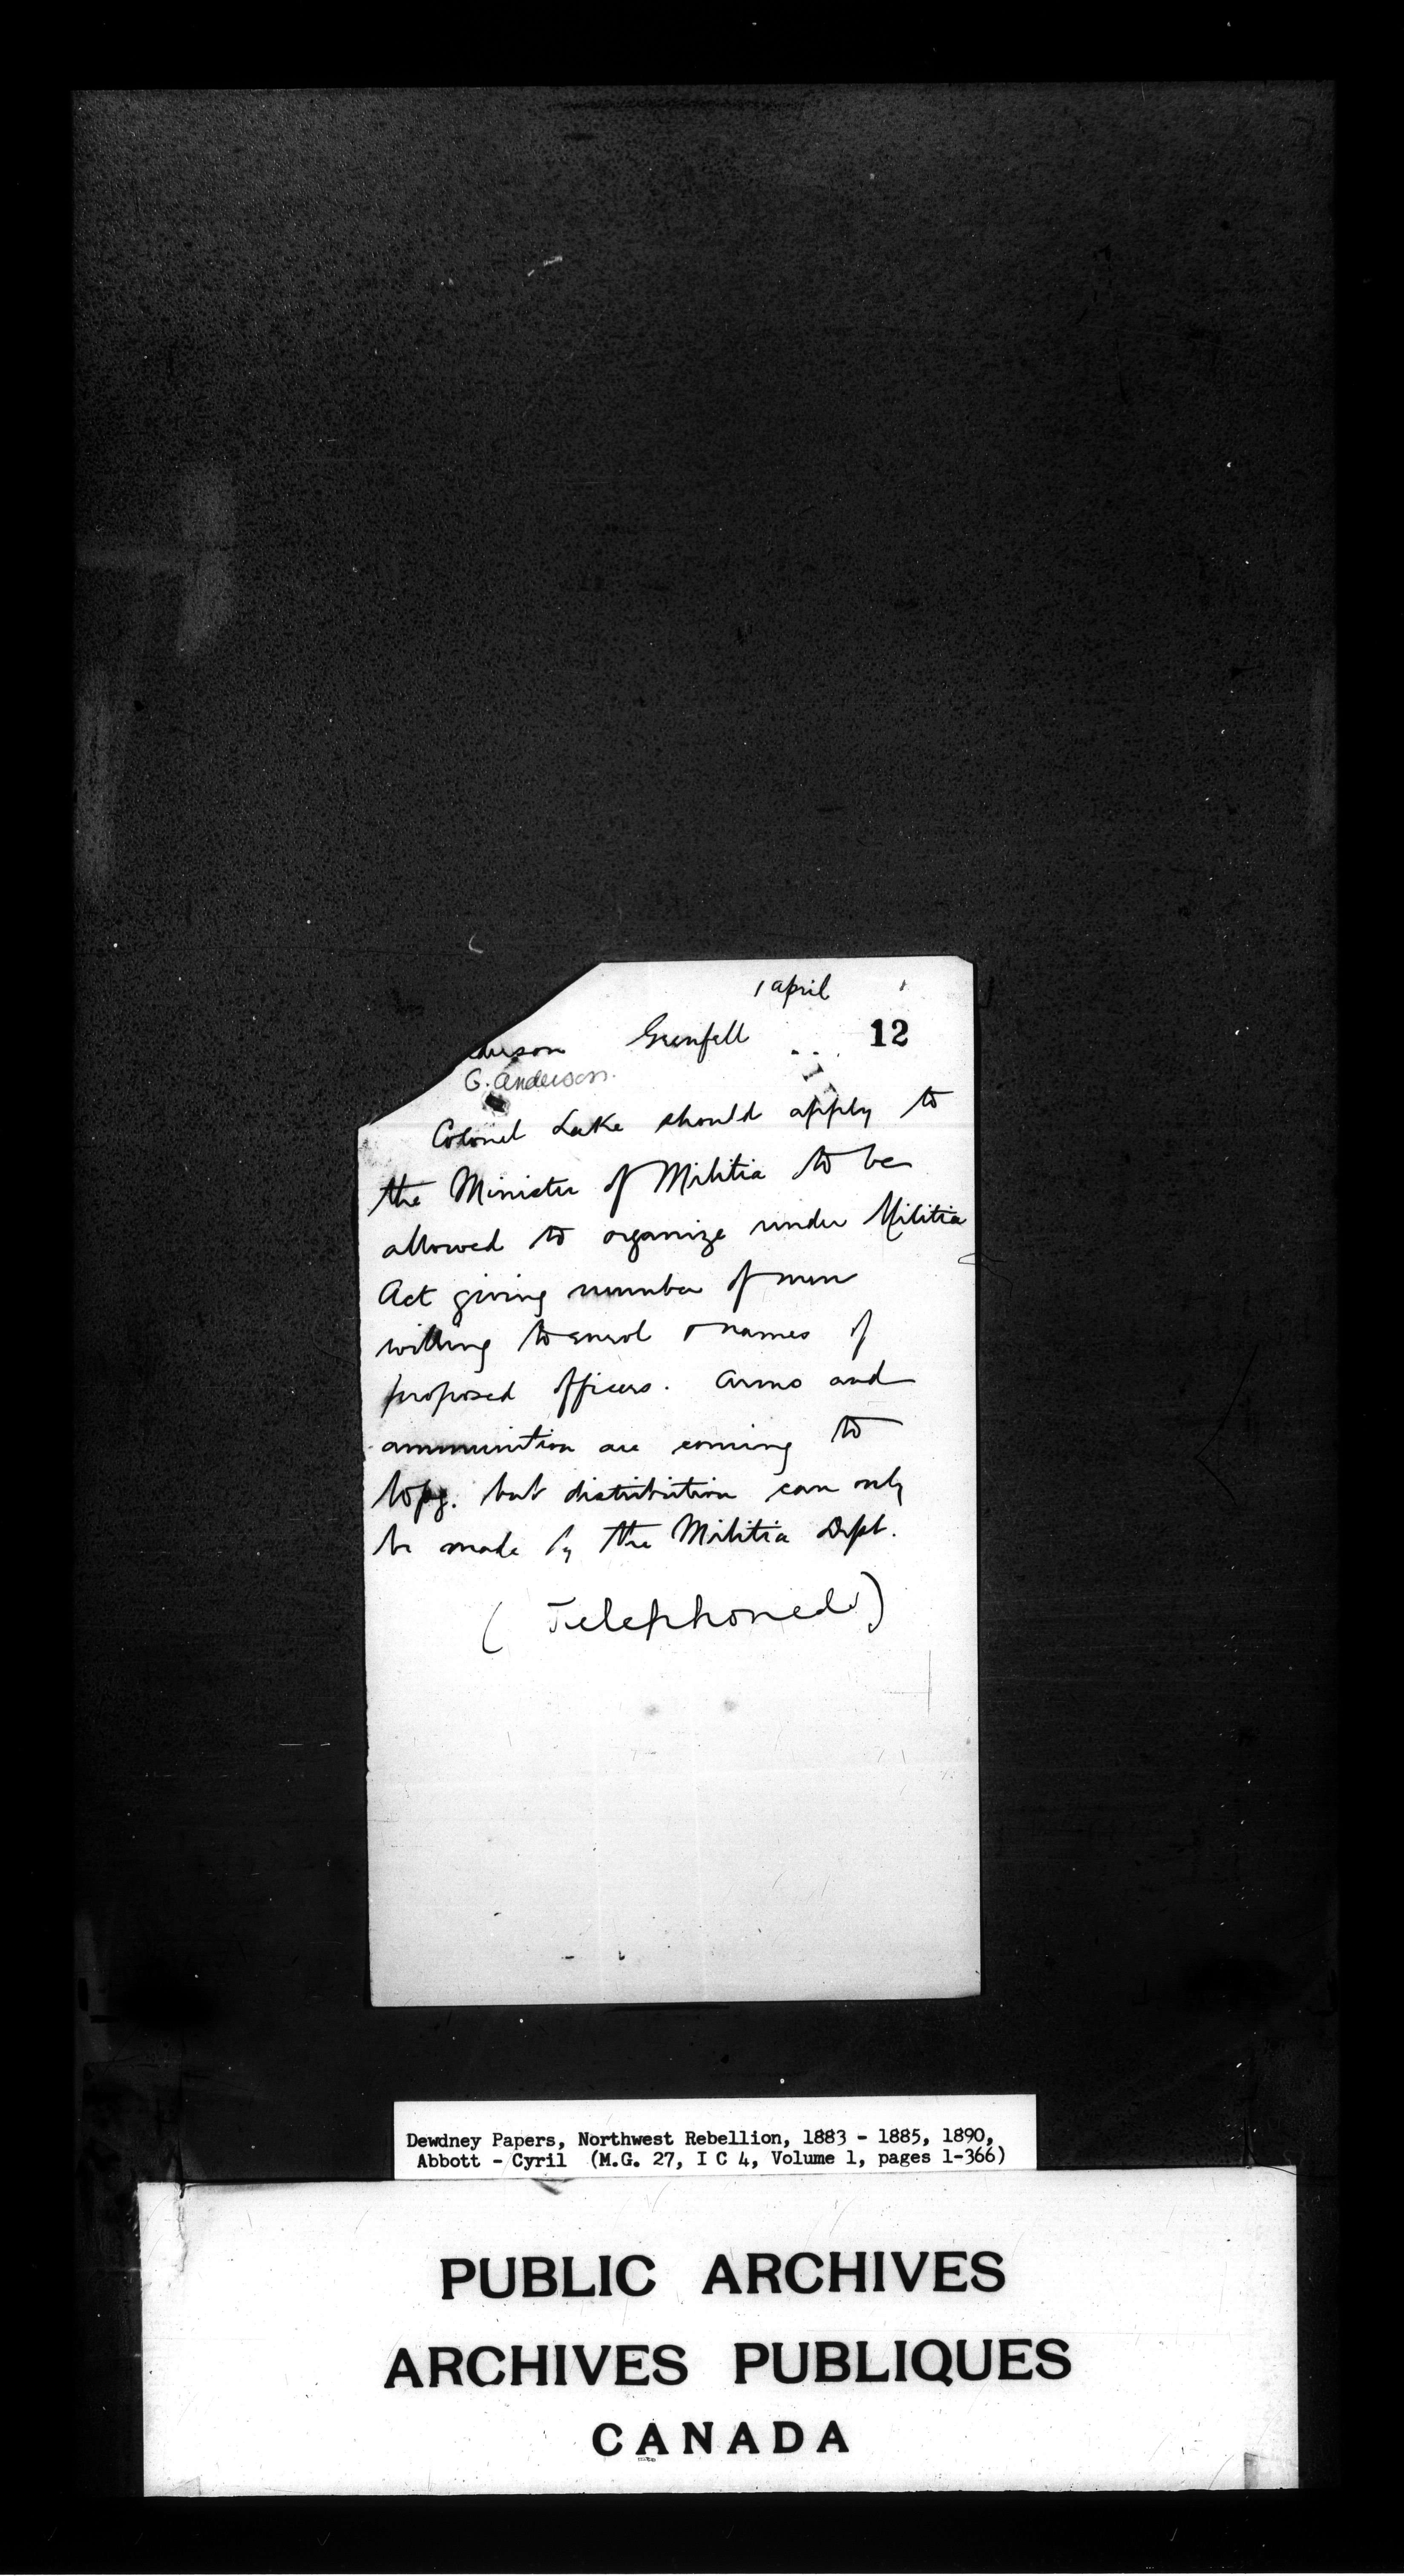 1 april
Grenfell 12
derson
G. Anderson.
Colonel Lake should apply to
the Minister of Militia to be
allowed to organize under Militia
Act giving number of men
willing to enrol & names of
proposed officers. Arms and
ammunition are coming to
Wpg. but distribution can only
be made by the Militia Dept.
(Telephoned)
Dewdney Papers, Northwest Rebellion, 1883 - 1885, 1890,
Abbott - Cyril (M.G. 27, I C 4, Volume 1, pages 1-366)
PUBLIC ARCHIVES
ARCHIVES PUBLIQUES
CANADA